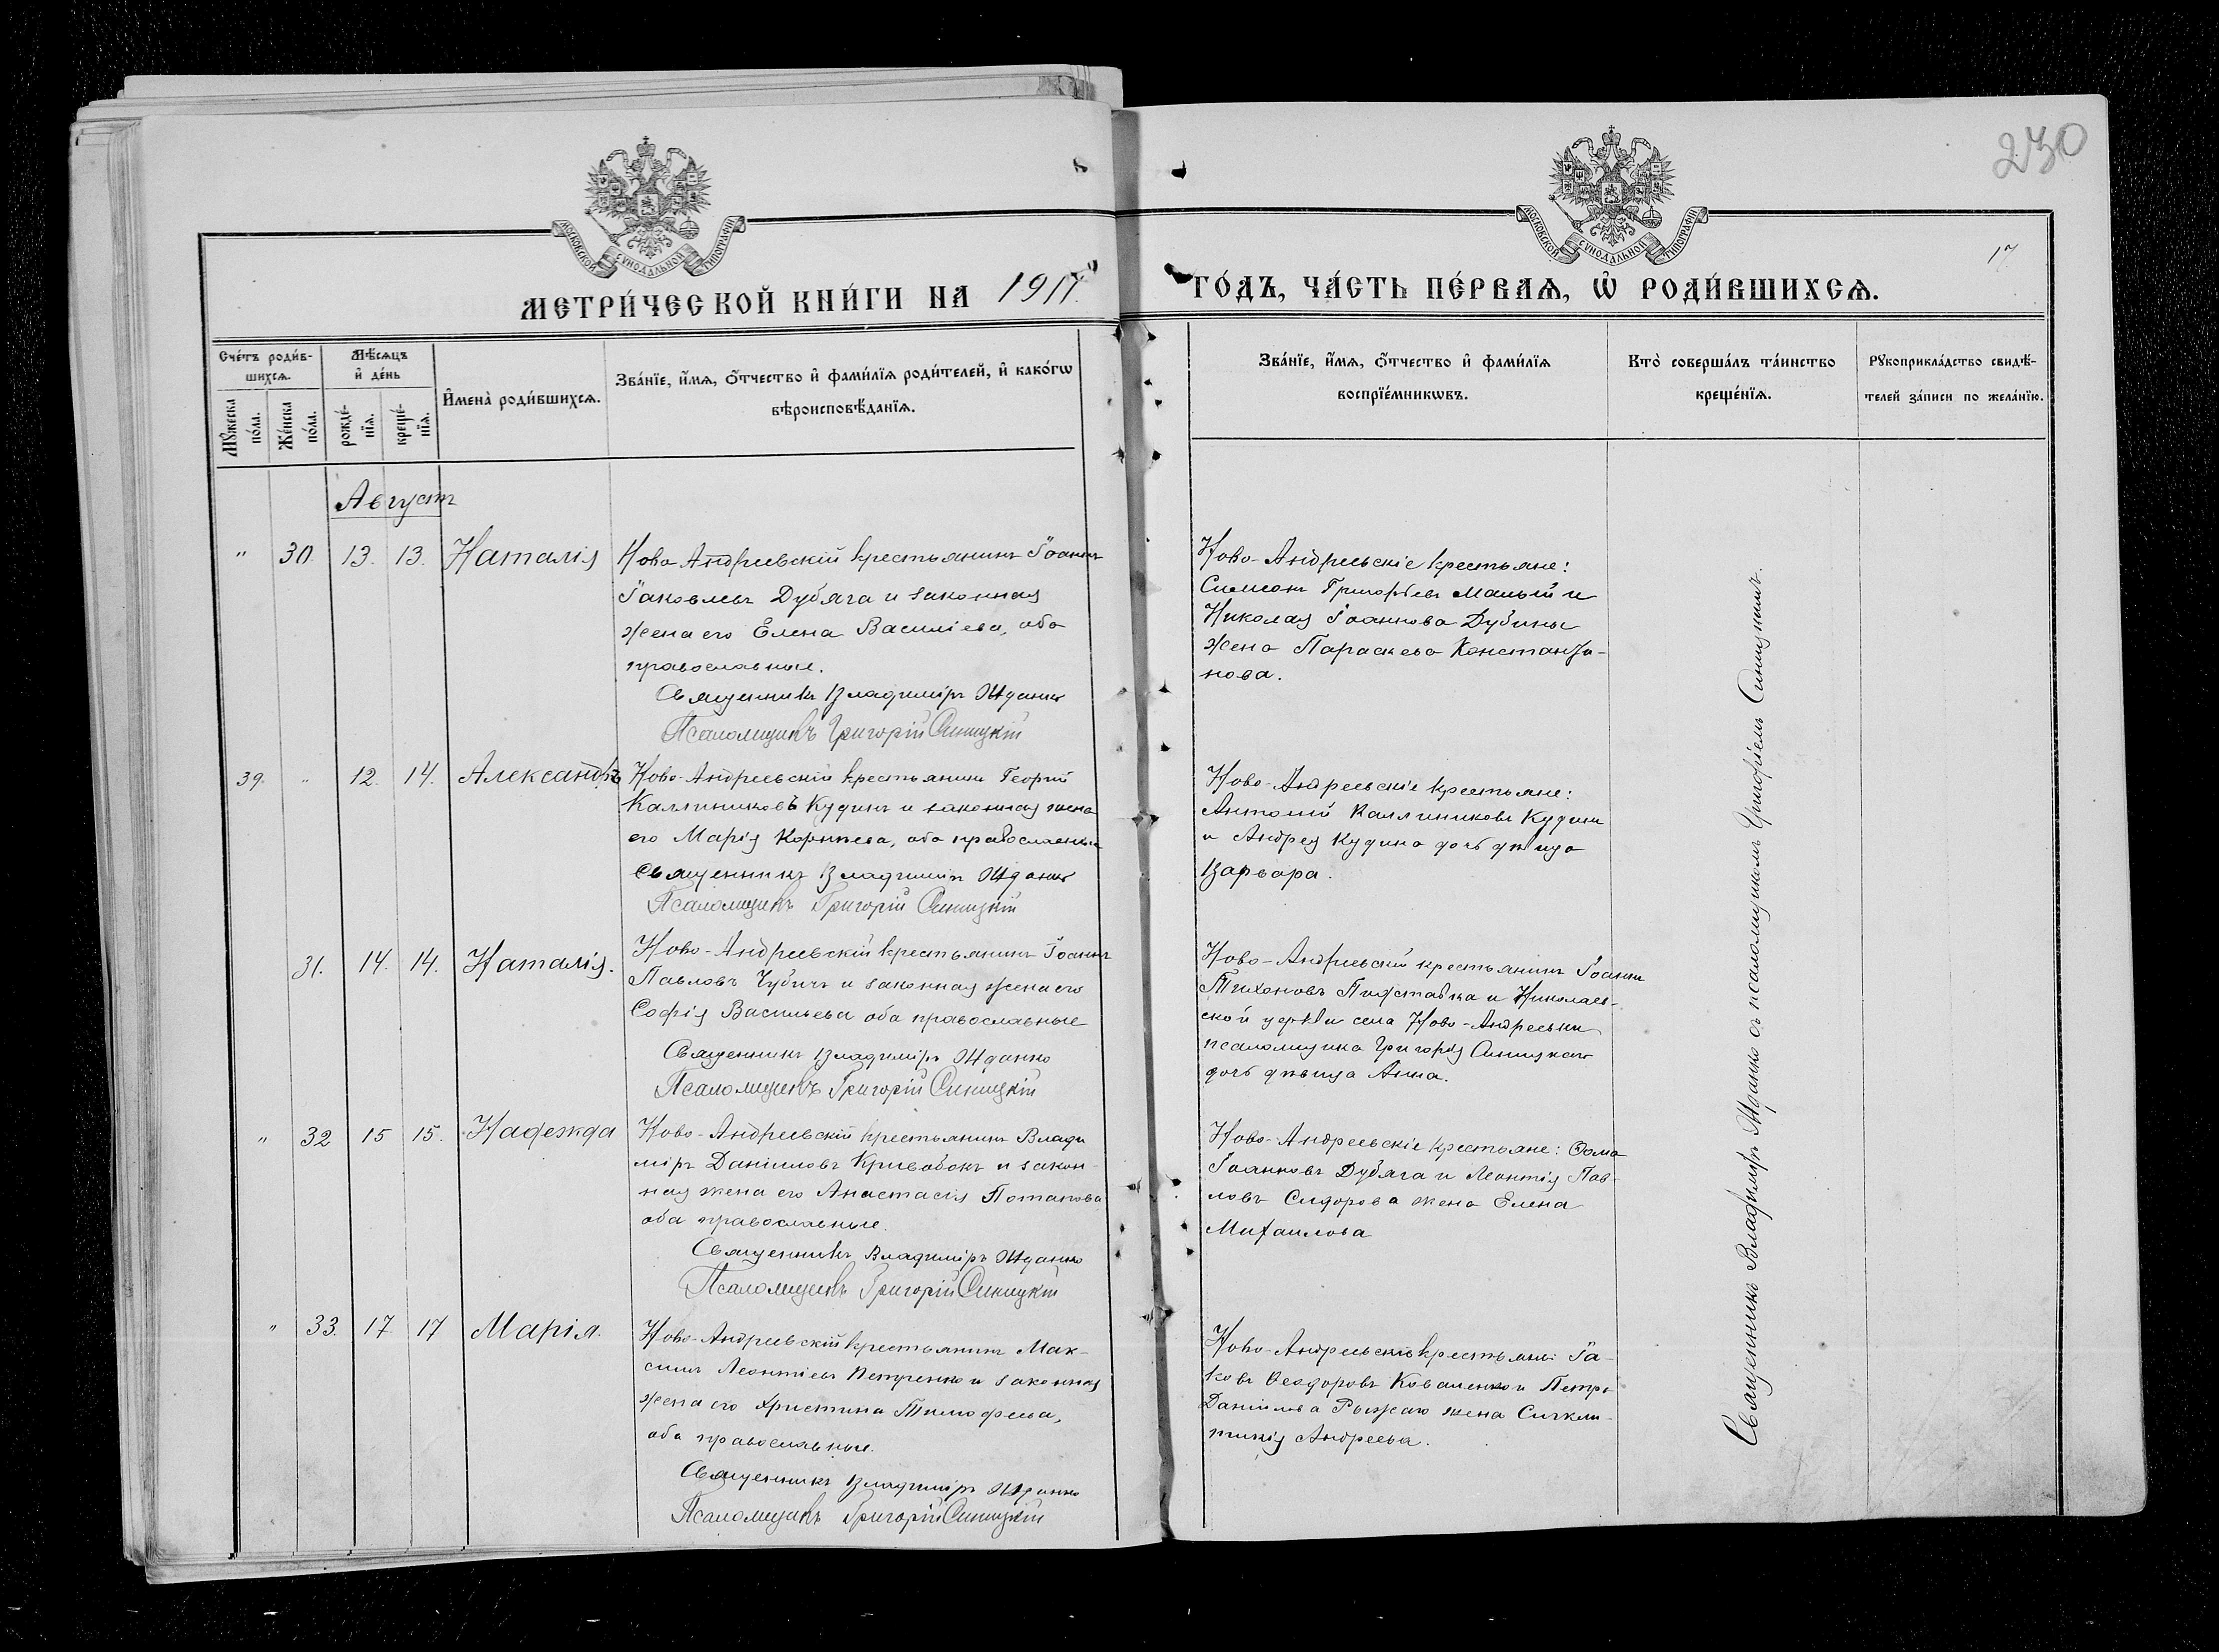 230
МОСКОВСКОЙ СѴНОДАЛЬНОЙ ТИПОГРАФІИ
МОСКОВСКОЙ СѴНОДАЛЬНОЙ ТИПОГРАФІИ
17
МЕТРИ́ЧЕСКОЙ КНИ́ГИ НА 1917 ГО́ДЪ, ЧА́СТЬ ПЕ́РВАѦ, Ѡ҆ РОДИ́ВШИХСѦ.
Сче́тъ роди́в-
шихсѧ.
Мѣ́сѧцъ
и҆ де́нь
Мꙋ́жеска
по́ла.
Же́нска
по́ла.
рожде́-
нїѧ.
креще́-
нїѧ.
И҆мена̀ роди́вшихсѧ.
Зва́нїе, и҆́мѧ, ѻ҆́тчество и҆ фами́лїѧ роди́телей, и҆ како́гѡ
вѣроисповѣ́данїѧ.
Зва́нїе, и҆́мѧ, ѻ҆́тчество и҆ фами́лїѧ
воспрїе́мникѡвъ.
Кто̀ соверша́лъ та́инство
креще́нїѧ.
Рꙋкоприкла́дство свидѣ́-
телей за́писи по жела́нїю.
Августъ
" 30. 13. 13. Наталія
Ново-Андреевскій крестьянинъ Іоаннъ
Іаковлевъ Дубяга и законная
жена его Елена Василіева, оба
православные.
Священникъ Владиміръ Жданко
Псаломщикъ Григорій Синицкій
Ново-Андреевскіе крестьяне:
Симеонъ Григорьевъ Малый и
Николая Іоаннова Дубины
жена Параскева Константи-
нова.
39. " 12. 14. Александръ
Ново-Андреевскій крестьянинъ Георгій
Каллиниковъ Кудинъ и законная жена
его Марія Корнѣева, оба православные
Священникъ Владиміръ Жданко
Псаломщикъ Григорій Синицкій
Ново-Андреевскіе крестьяне:
Антоній Каллиниковъ Кудинъ
и Андрея Кудина дочь дѣвица
Варвара.
31. 14. 14. Наталія.
Ново-Андреевскій крестьянинъ Іоаннъ
Павловъ Чубичъ и законная жена его
Софія Васильева оба православные
Священникъ Владиміръ Жданко
Псаломщикъ Григорій Синицкій
Ново-Андреевскій крестьянинъ Іоаннъ
Тихоновъ Пидставка и Николаев-
ской церкви села Ново-Андреевки
псаломщика Григорія Синицкаго
дочь дѣвица Анна.
" 32 15 15. Надежда
Ново-Андреевскій крестьянинъ Влади
міръ Даніиловъ Кривобокъ и закон-
ная жена его Анастасія Потапова
оба православные.
Священникъ Владиміръ Жданко
Псаломщикъ Григорій Синицкій
Ново-Андреевскіе крестьяне: Ѳома
Іоанновъ Дубяга и Леонтія Пав-
ловъ Сидорова жена Елена
Михаилова
" 33. 17 17 Марія.
Ново-Андреевскій крестьянинъ Мак-
симъ Леонтіевъ Петренко и законная
жена его Христина Тимофеева,
оба православные.
Священникъ Владиміръ Жданко
Псаломщикъ Григорій Синицкій
Ново-Андреевскіе крестьяне: Іа-
ковъ Ѳеодоровъ Коваленко и Петра
Даніилова Рыжаго жена Сигкли-
тикія Андреева.
Священникъ Владиміръ Жданко съ псаломщикомъ Григоріемъ Синицкимъ.